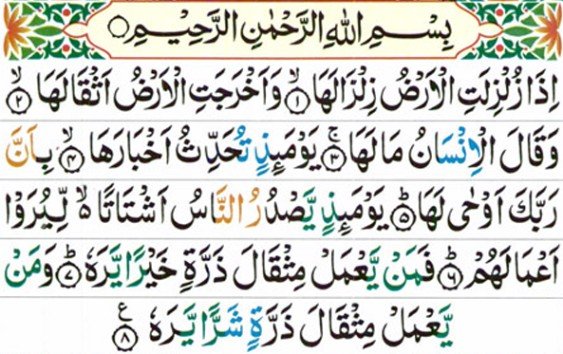 بِسْمِ اللهِ الرَّحْمٰنِ الرَّحِيْمِ
اِذَا زُلْزِلَتِ الْاَرْضُ زِلْزَالَهَا ۙ﴿۱﴾ وَاَخْرَجَتِ الْاَرْضُ اَثْقَالَهَا ۙ﴿۲﴾
وَقَالَ الْاِنْسَانُ مَا لَهَا ۚ﴿۳﴾ يَوْمَىِٕذٍ تُحَدِّثُ اَخْبَارَهَا ۙ﴿۴﴾ بِاَنَّ
رَبَّكَ اَوْحٰى لَهَا ؕ﴿۵﴾ يَوْمَىِٕذٍ يَّصْدُرُ النَّاسُ اَشْتَاتًا ۙ لِّيُرَوْا
اَعْمَالَهُمْ ؕ﴿۶﴾ فَمَنْ يَّعْمَلْ مِثْقَالَ ذَرَّةٍ خَيْرًا يَّرَهٗ ؕ﴿۷﴾ وَمَنْ
يَّعْمَلْ مِثْقَالَ ذَرَّةٍ شَرًّا يَّرَهٗ ﴿۸﴾ ع